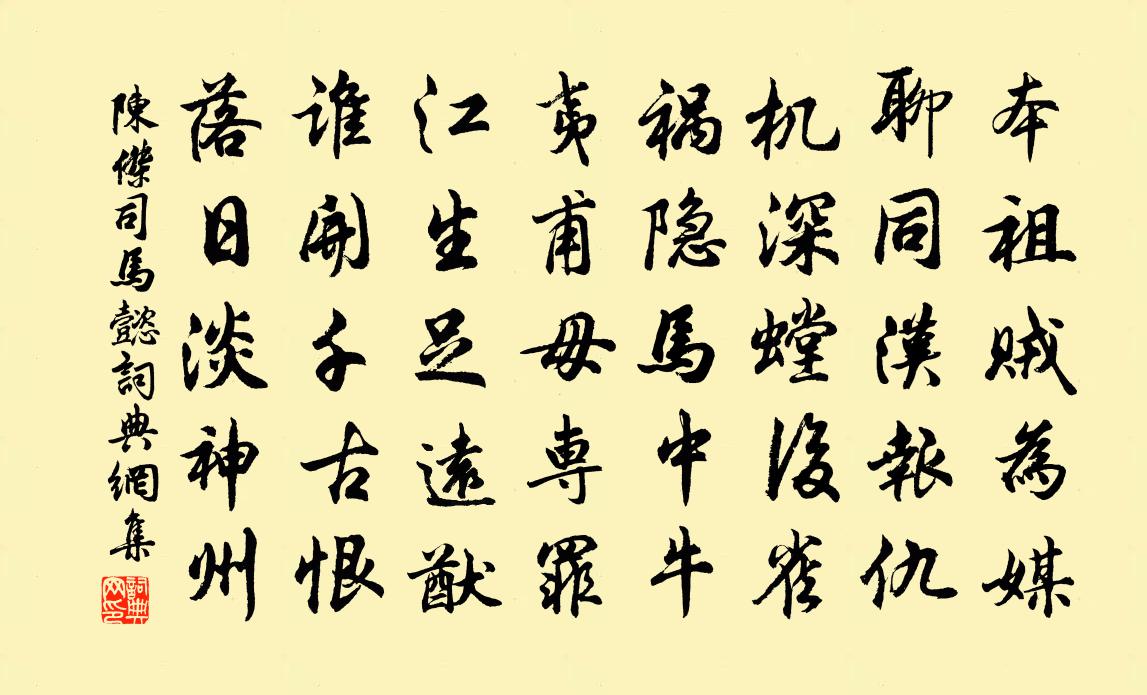 本祖贼為媒
聊同漢報仇
机深螳後雀
祸隐馬中牛
夷甫毋専罪
江生足遠猷
谁開千古恨
落日淡神州
陳傑司馬懿詞典網集
詞典网印